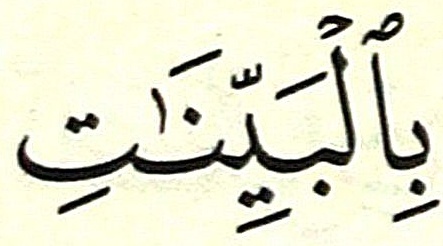 بِٱلۡبَيِّنَٰتِ